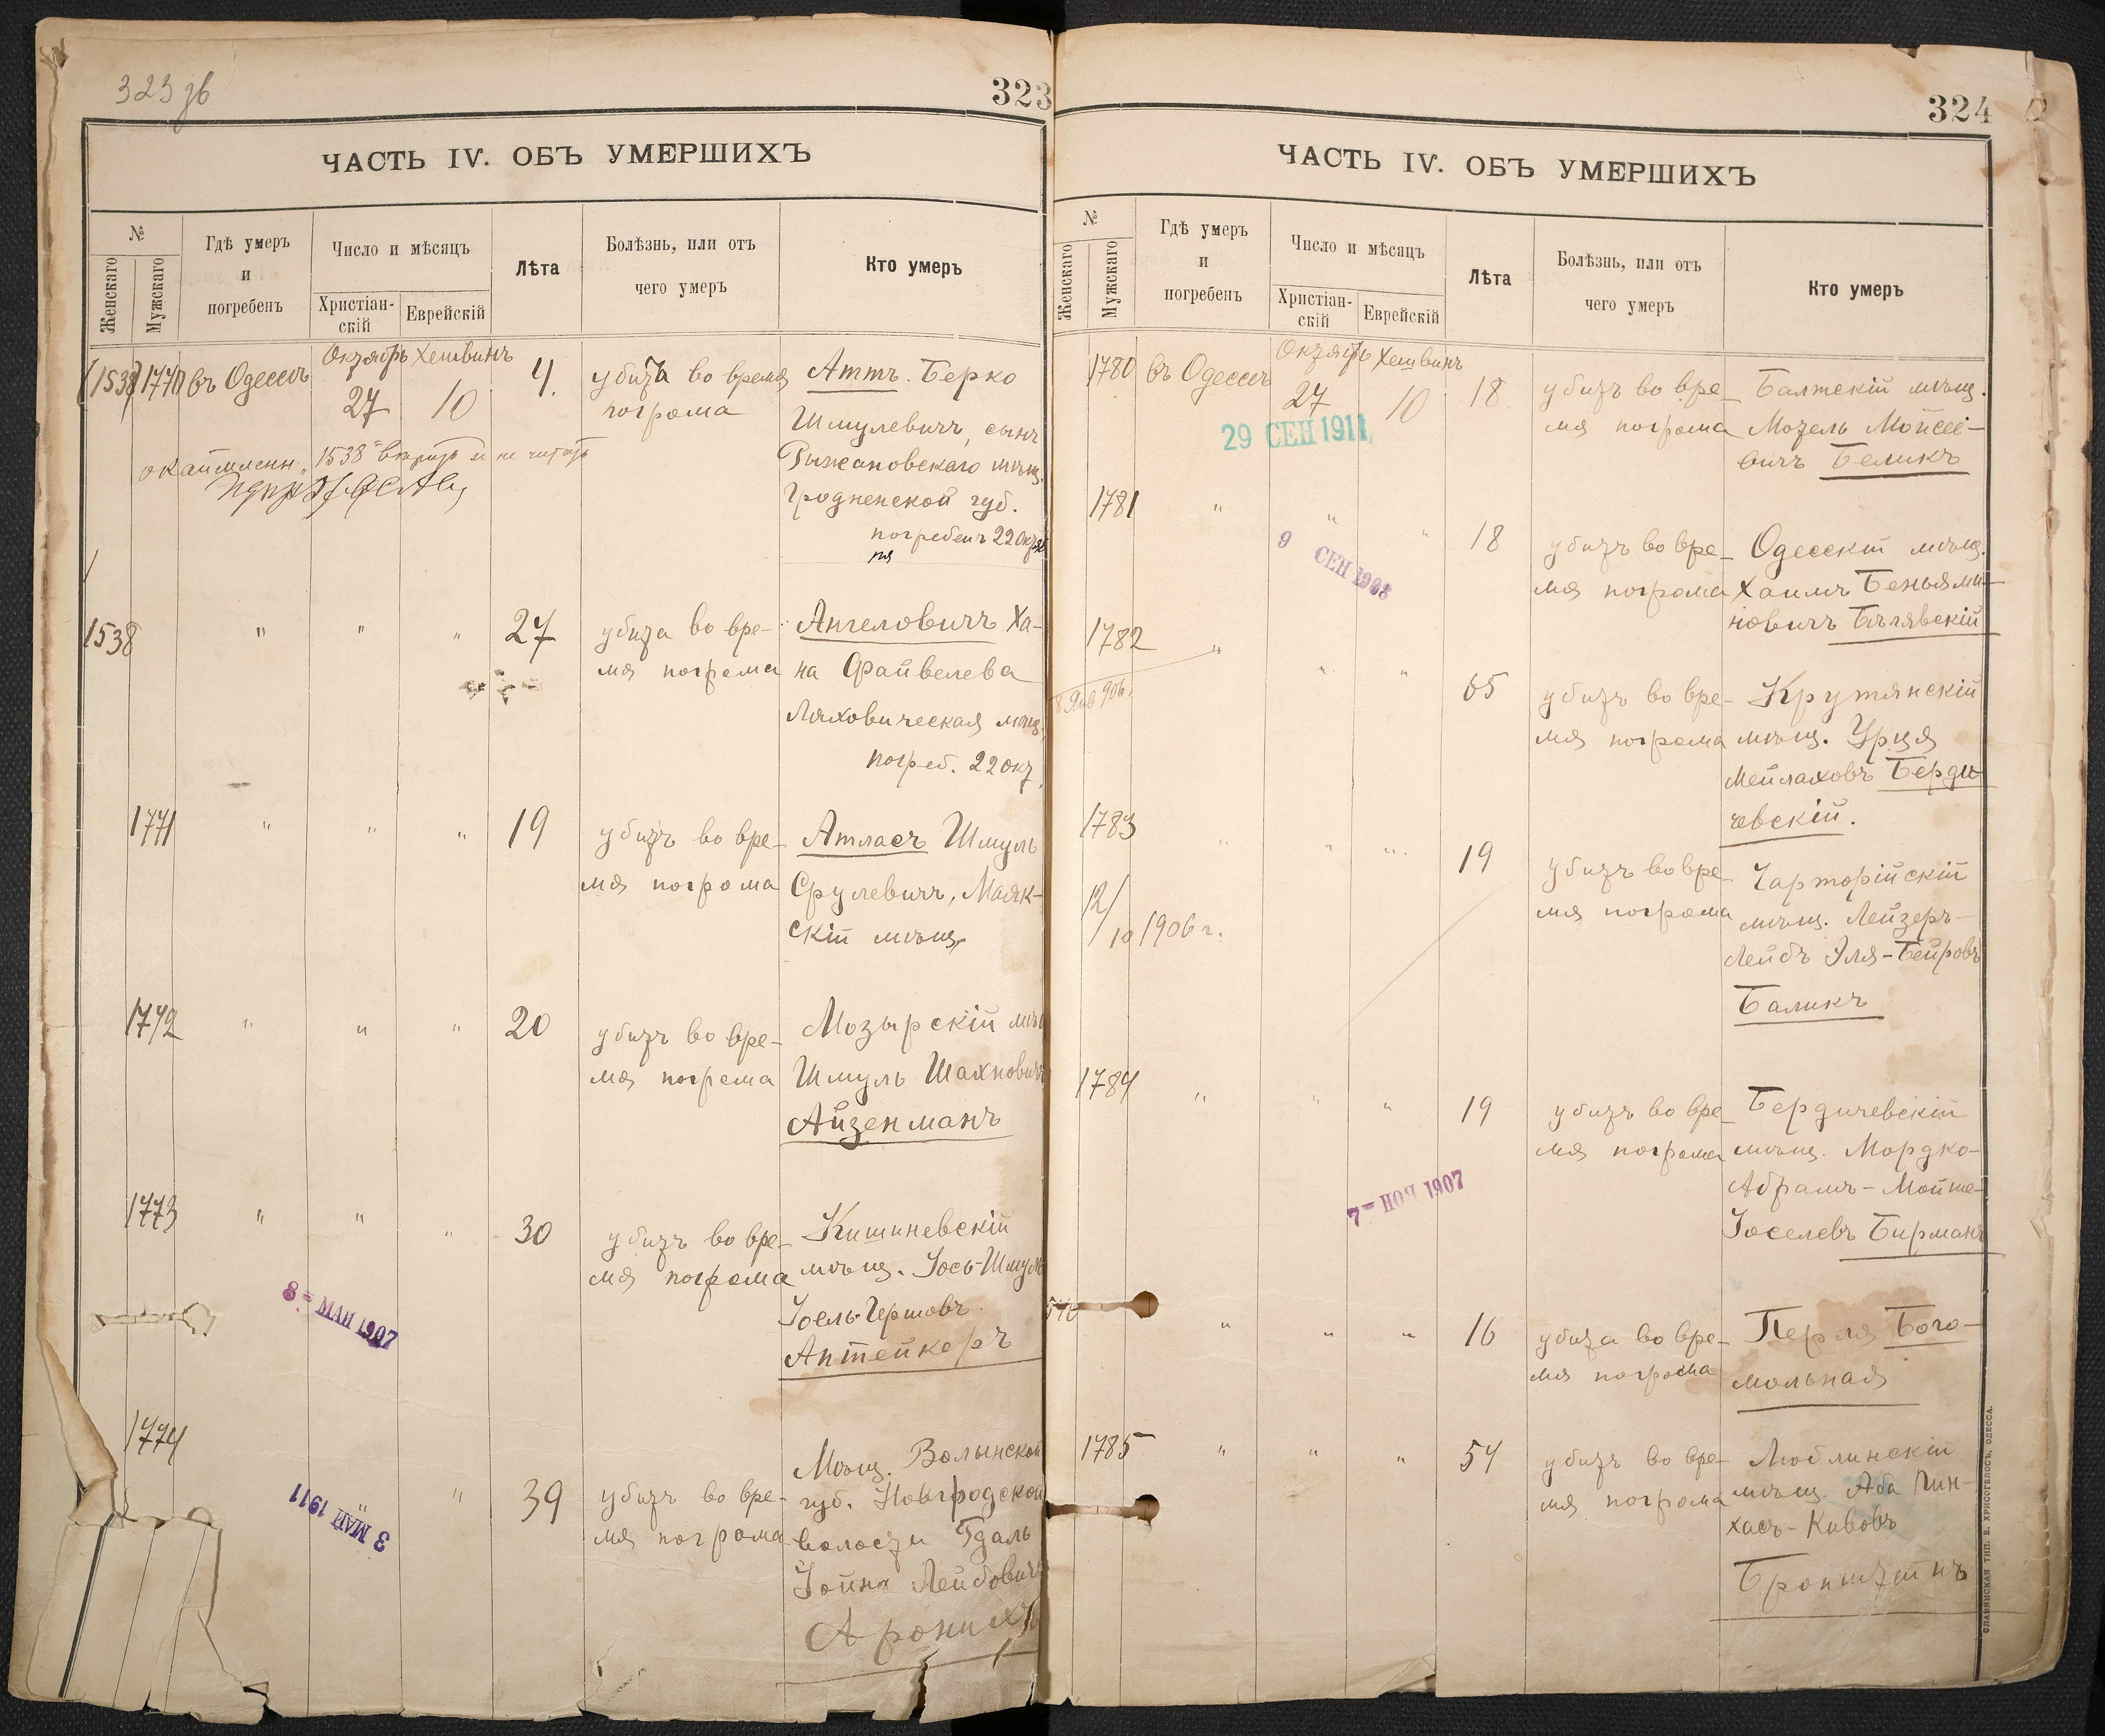 323 зв
323
ЧАСТЬ IV. ОБЪ УМЕРШИХЪ
№
Женскаго
Мужскаго
Гдѣ умеръ
и
погребенъ
Число и мѣсяцъ
Христіан-
скій
Еврейскій
Лѣта
Болѣзнь, или отъ
чего умеръ
Кто умеръ
(1538) 1770 въ Одессѣ
Октябрь Хешвинъ
27 10
4.
убита во время
погрома
Аттъ. Берко
Шмулевичъ, сынъ
Рыжановскаго мѣщ.
Гродненской губ.
погребенъ 22 октяб
ря
"1538"
1538 " " "
27
убита во вре-
мя погрома
Ангеловичъ Ха-
на Файвелева
Ляховическая мѣщ.
погреб. 22 окт.
1771 " " "
19
убитъ во вре-
мя погрома
Атласъ Шмуль
Срулевичъ, Маяк-
скій мѣщ.
1772 " " "
20
убитъ во вре-
мя погрома
Мозырскій мѣщ
Шмуль Шахновичъ
Айзенманъ
1773 " " "
30
убитъ во вре-
мя погрома
Кишиневскій
мѣщ. Іось-Шмуль
Іоель-Гершовъ
Аптейкеръ
8 = МАЙ 1907
1774 "
39
убитъ во вре-
мя погрома
Мѣщ. Волынской
губ. Новгродской
волости Гдаль
Іойна Лейбовичъ
Аронихъ
3 МАЙ 1911
324
ЧАСТЬ IV. ОБЪ УМЕРШИХЪ
№
Женскаго
Мужскаго
Гдѣ умеръ
и
погребенъ
Число и мѣсяцъ
Христіан-
скій
Еврейскій
Лѣта
Болѣзнь, или отъ
чего умеръ
Кто умеръ
1780 въ Одессѣ
Октябрь Хешвинъ
27 10
18
убитъ во вре-
мя погрома
Балтскій мѣщ.
Мотель Мойсее-
вичъ Беликъ
29 СЕН 1911
1781 " " "
18
убитъ во вре-
мя погрома
Одесскій мѣщ.
Хаимъ Беньями-
новичъ Бѣлявскій
9 СЕН 1908
1782 " " "
65
убитъ во вре-
мя погрома
Крутянскій
мѣщ. Урця
Мейлаховъ Берди-
чевскій.
8 Янв 906.
1783 " " "
19
убитъ во вре-
мя погрома
Чарторійскій
мѣщ. Лейзеръ-
Лейбъ Эля-Бейровъ
Баликъ
12/10 1906 г.
1784 " " "
19
убитъ во вре-
мя погрома
Бердичевскій
мѣщ. Мордко-
Абрамъ-Мойше-
Іоселевъ Бирманъ
7 = НОЯ 1907
" " "
16
убита во вре-
мя погрома
Перля Бого-
мольная
1785 " " "
54
убитъ во вре-
мя погрома
Люблинскій
мѣщ. Аба Пин-
хасъ-Кивовъ
Бронштейнъ
СЛАВЯНСКАЯ ТИП. Е. ХРИСОГЕЛОСЪ, ОДЕССА.